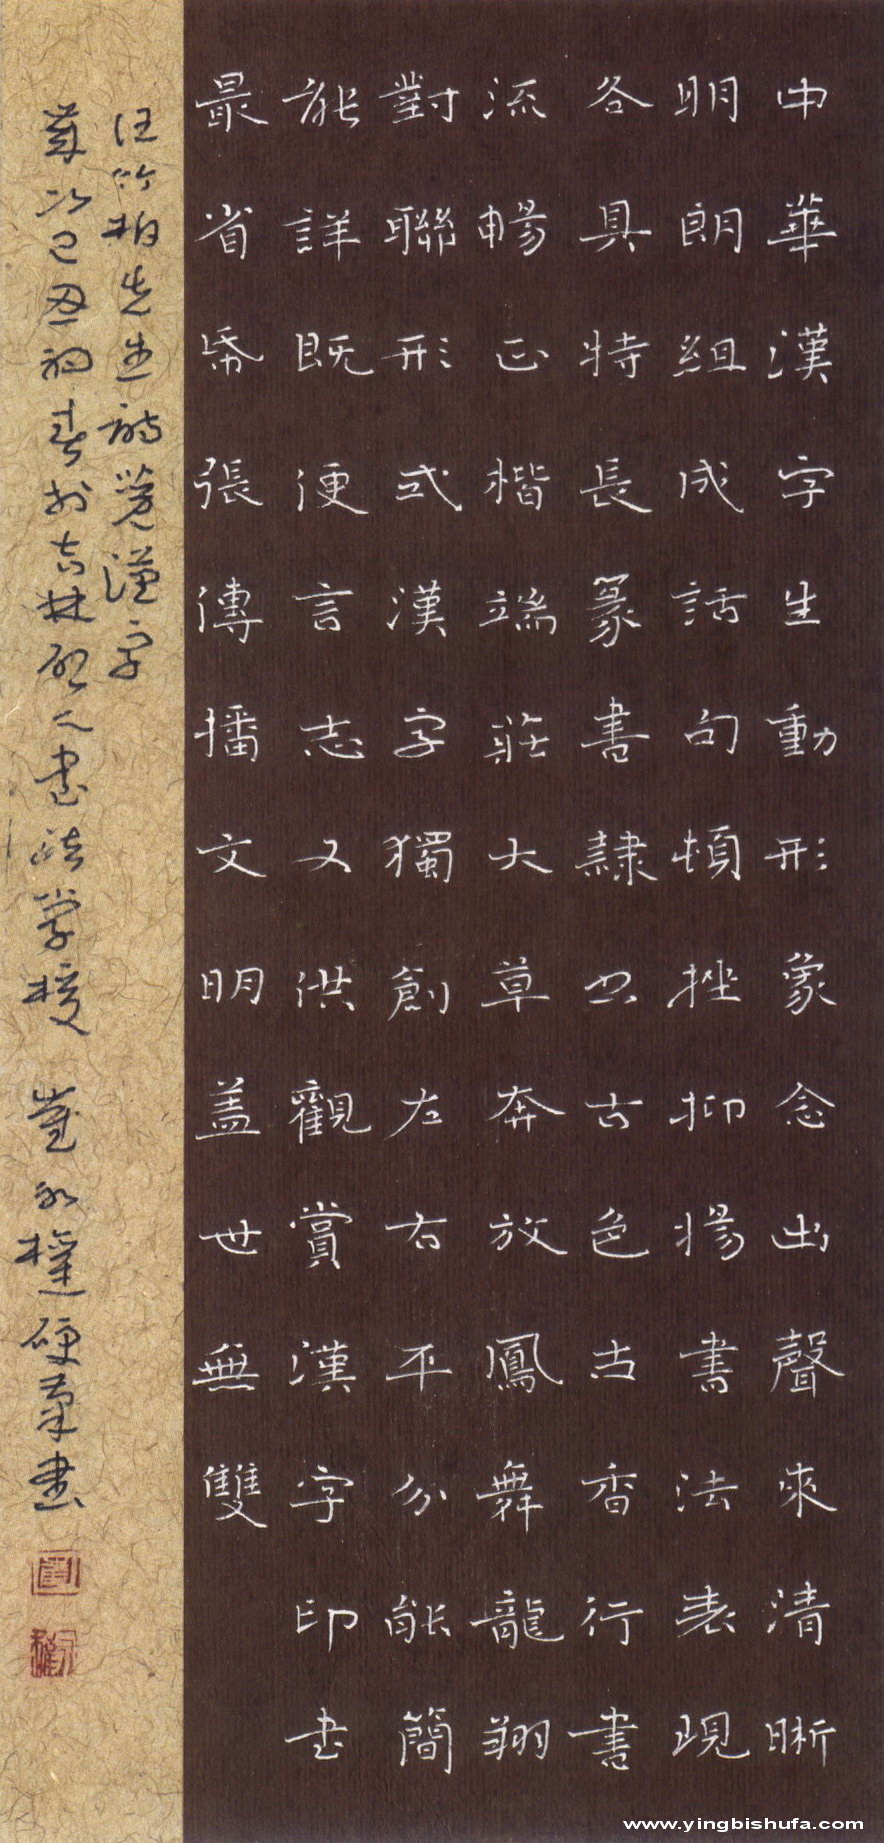 中華漢字生動形象念出聲來清晰
明朗組成話句頓挫抑揚書法表現
各具特長篆書隸書古色古香行書
流暢正楷端莊大草奔放鳳舞龍翔
對聯形式漢字獨創左右平分能簡
能詳既便言志又供觀賞漢字印書
最省帋張傳播文明盖世無雙
汪竹柏先生詩漢字
歲次己丑初春於吉林書法學校 崔永硬筆書
www.yingbishufa.com